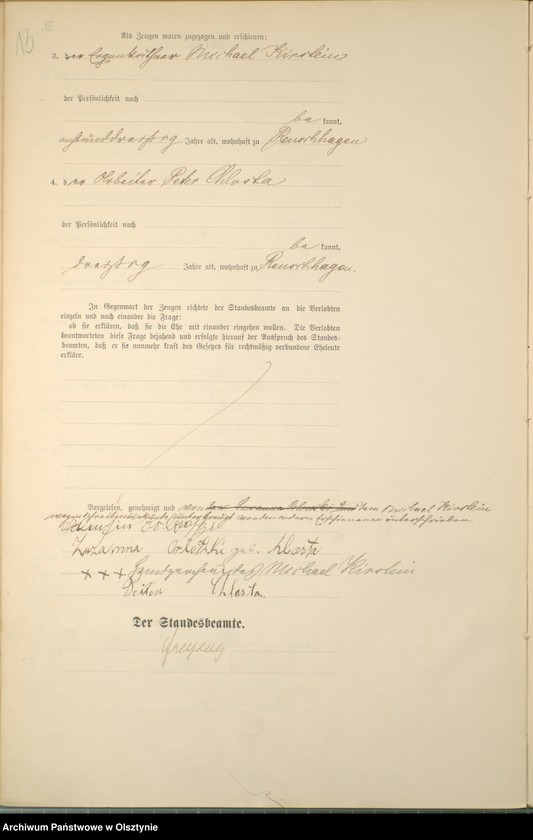 13
Als Zeugen waren zugezogen und erschienen:
3. der Eigenkäthner Michael Kirstein
der Persönlichkeit nach
be kannt,
Jahre alt, wohnhaft zu Reuschhagen
4. der Arbeiter Peter Chlosta
der Persönlichkeit nach
be kannt,
dreißig Jahre alt, wohnhaft zu Reuschhagen.
In Gegenwart der Zeugen richtete der Standesbeamte an die Verlobten
einzeln und nach einander die Frage:
ob sie erklären, daß sie die Ehe mit einander eingehen wollen. Die Verlobten
beantworteten diese Frage bejahend und erfolgte hierauf der Ausspruch des Standes-
beamten, daß er sie nunmehr kraft des Gesetzes für rechtmäßig verbundene Eheleute
erkläre.
Vorgelesen, genehmigt und von dem Michael Kirstein
wegen Schreibensunkunde unterkreuzt von den anderen Erschienenen unterschrieben.
Zuzanna geb.
+ + + Handzeichen des Michael Kirstein
Chlosta.
Der Standesbeamte.
Archiwum Państwowe w Olsztynie